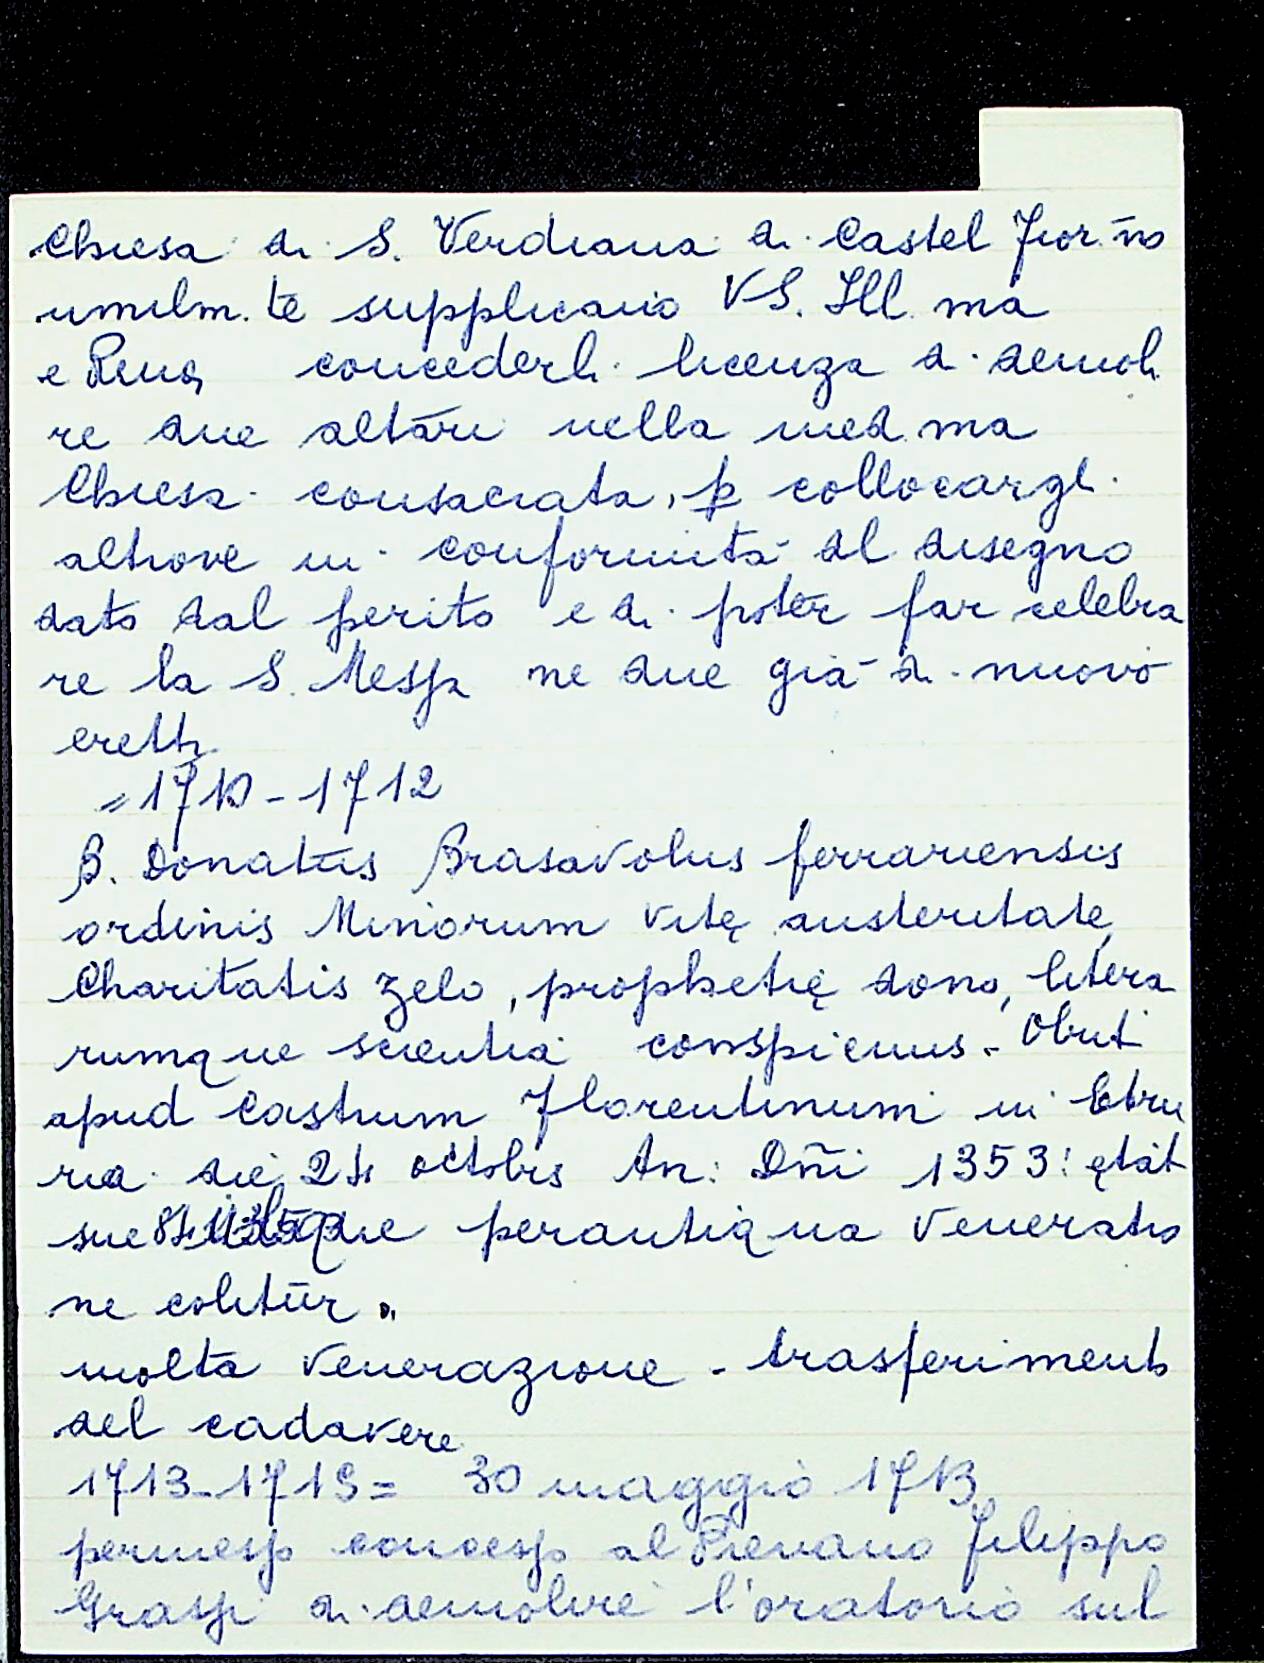 Chiesa di S. Verdiana di Castel Fior.no
umilm.te supplicano VS. Ill.ma
e Rma concederli licenza di demoli
re due altari nella med.ma
Chiesa consacrata, p collocargli
altrove in conformità al disegno
dato dal perito e di poter far celebra
re la S. Messa ne due già di nuovo
eretti
= 1710-1712
B. Donatus Brasavolus ferrariensis
ordinis Minorum vitę austeritate,
Charitatis zelo, prophetię dono, litera
rumque scientia conspicuus. Obiit
apud Castrum Florentinum in Etru
ria die 24 octobris An: Dñi 1353: ętat
sue 84 perantiqua veneratio
ne colitur.
molta venerazione - trasferimento
del cadavere
1713-1719= 30 maggio 1713
permesso concesso al Pievano Filippo
Grassi di demolire l'oratorio sul